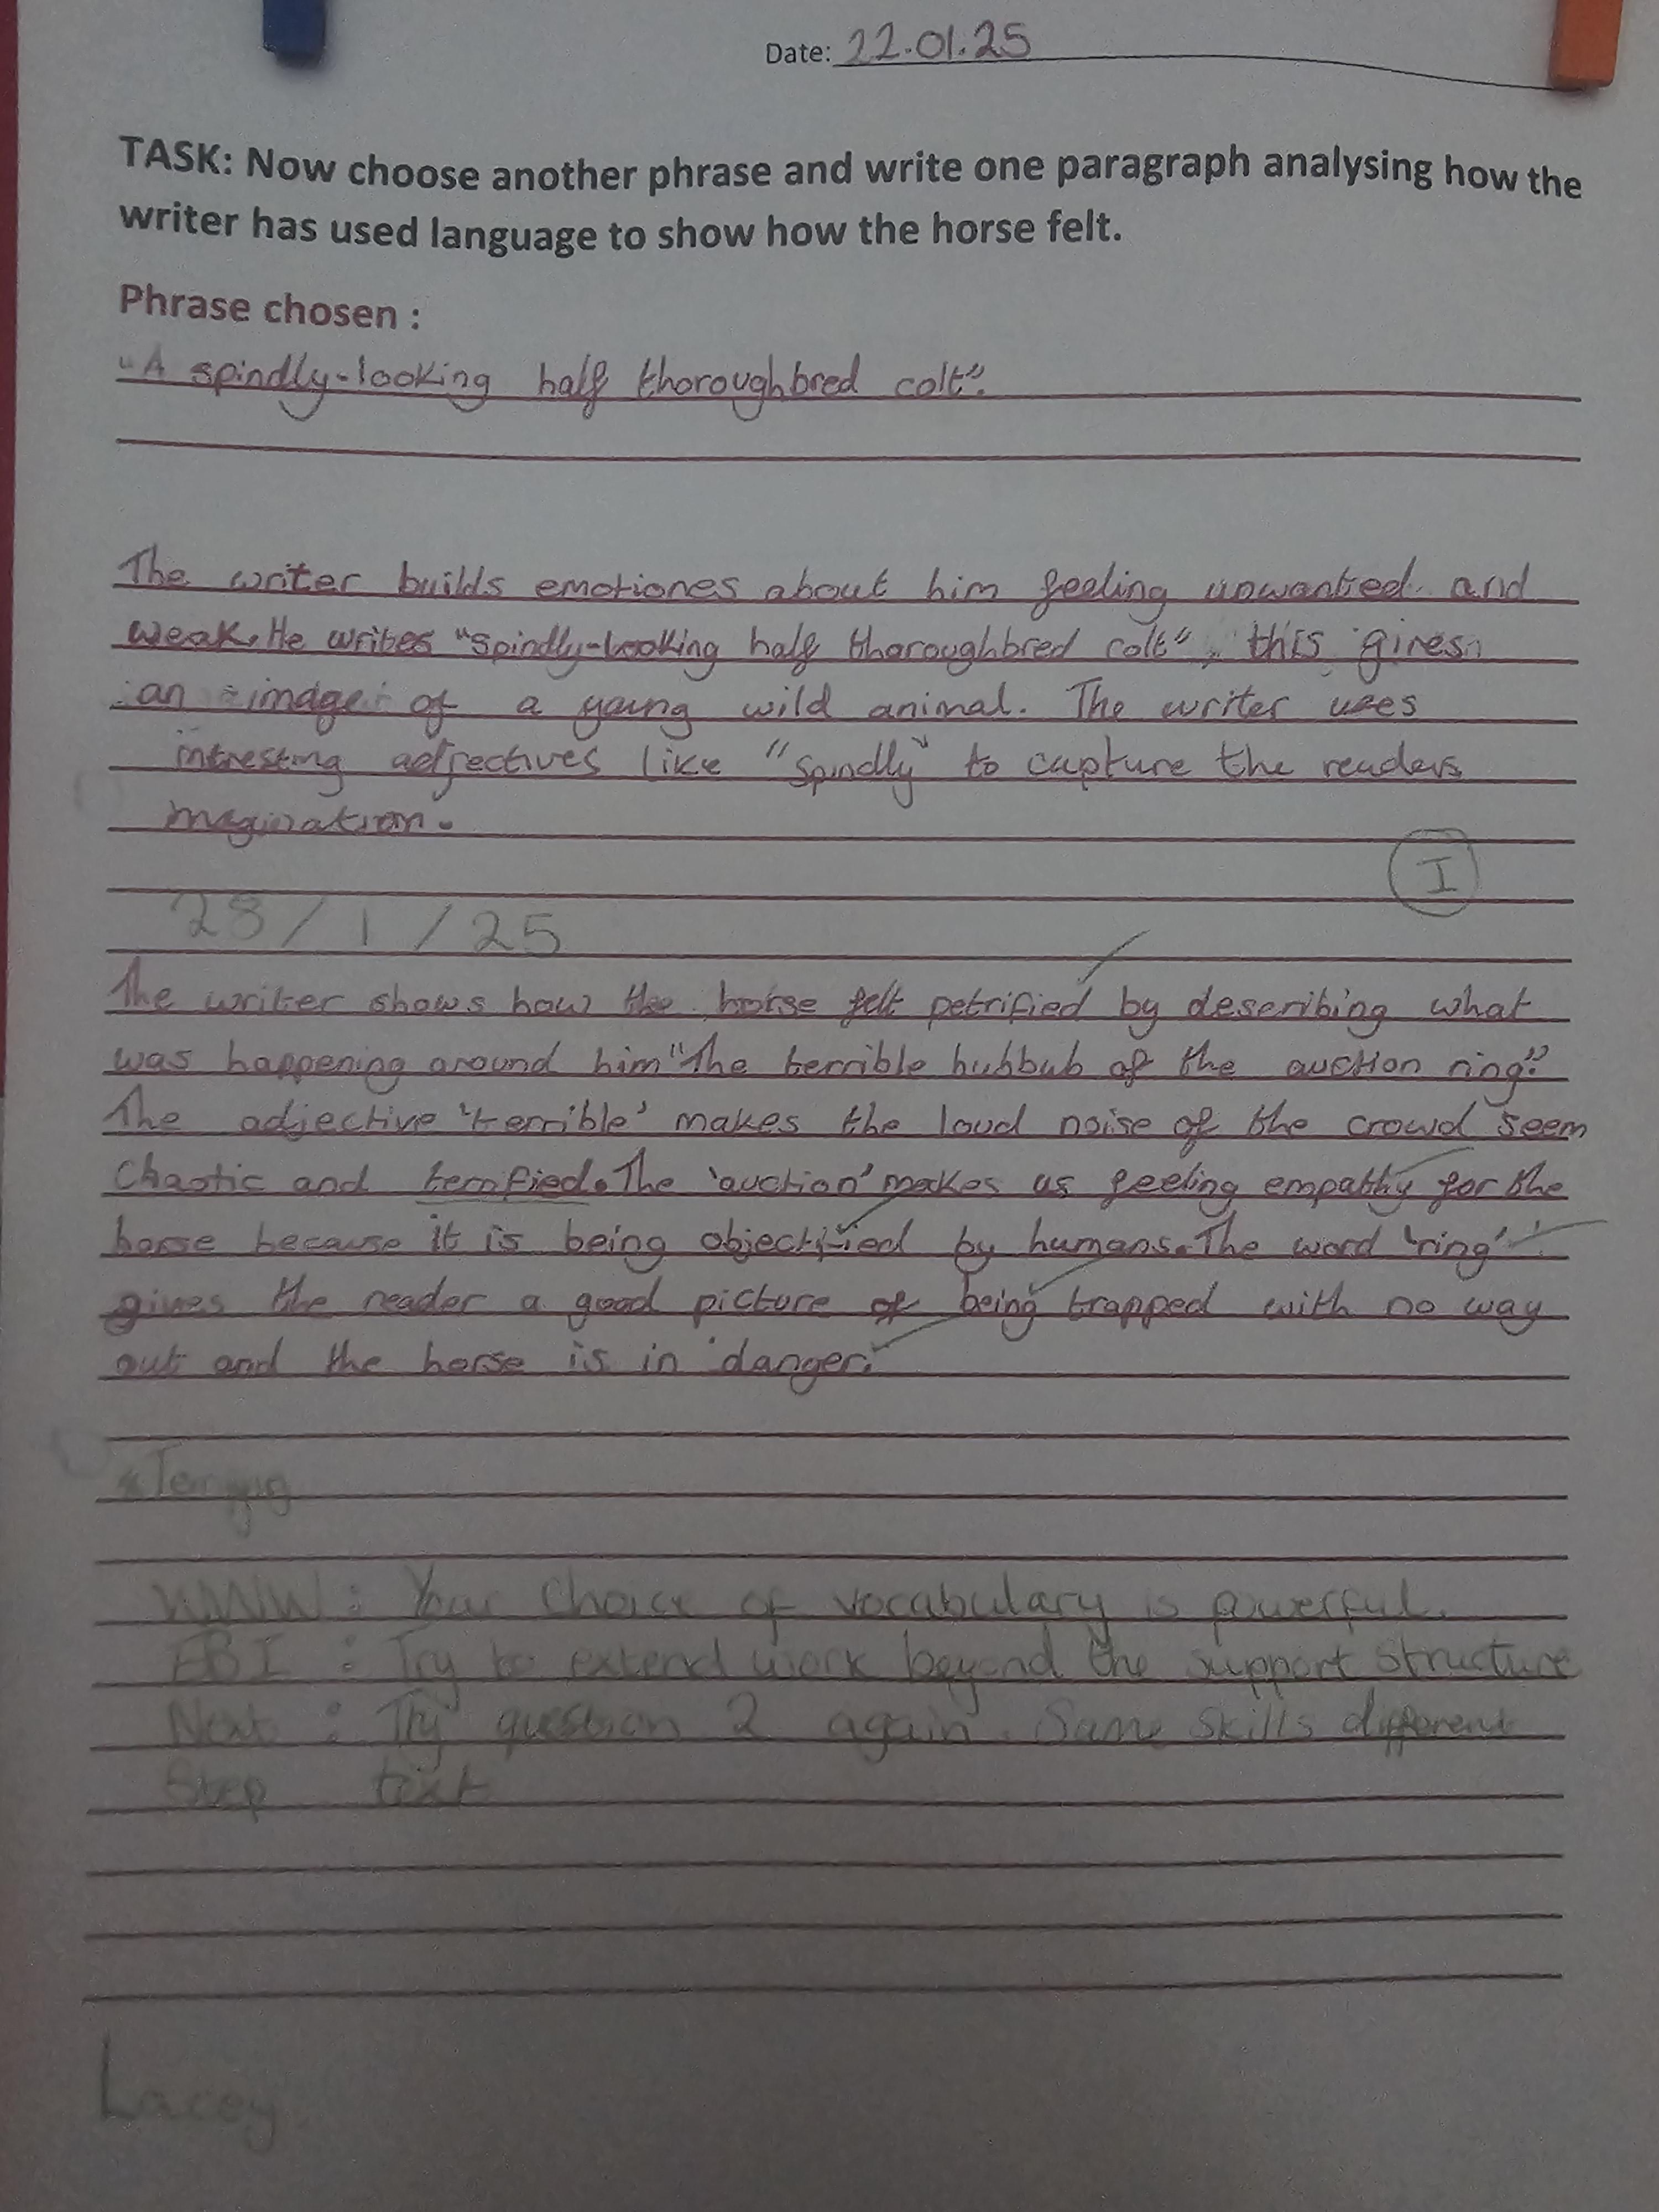 Date: 22.01.25
TASK: Now choose another phrase and write one paragraph analysing how the
writer has used language to show how the horse felt.
Phrase chosen :
"A spindly-looking half thoroughbred colt".
The writer builds emotiones about him feeling unwanted. and
weak. He writes "spindly-looking half thoroughbred colt", this gives
an imdge of a young wild animal. The writer uses
intresting adjectives like "spindly" to capture the readers
imagination.
I
28/1/25
The writer shows how the horse felt petrified by describing what
was happening around him "The terrible hubbub of the auction ring".
The adjective 'terrible' makes the loud noise of the crowd seem
chaotic and terrified. The 'auction' makes us feeling empathy for the
horse because it is being objectified by humans. The word 'ring'
gives the reader a good picture of being trapped with no way
out and the horse is in danger.
WWW: Your choice of vocabulary is powerful.
EBI : Try to extend work beyond the support structure
Next : Try question 2 again. Same skills different
Step text
Lacey